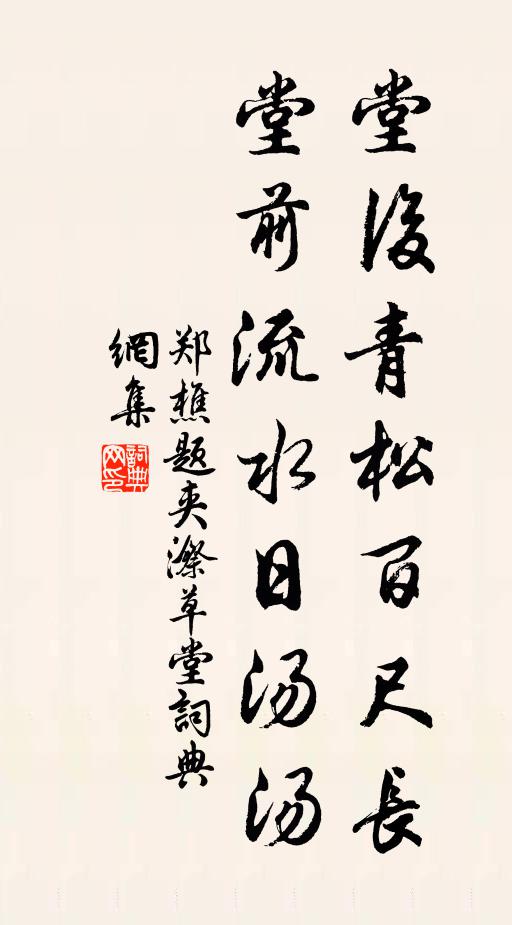 堂後青松百尺長
堂前流水日湯湯
郑樵題夹漈草堂詞典
網集
詞典
网印